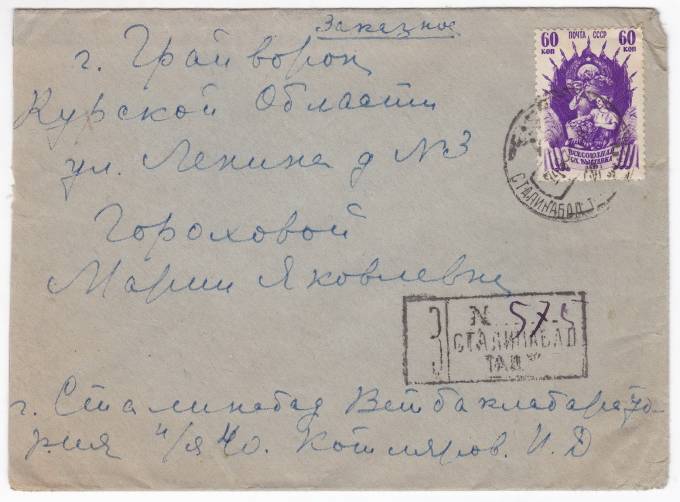 Заказное
г. Грайворон
Курской Области
ул. Ленина д №3
Гороховой
Марии Яковлевне
60 ПОЧТА СССР 60
КОП КОП
ВСЕСОЮЗНАЯ
С.Х. ВЫСТАВКА
СТАЛИНАБАД
З N 575
СТАЛИНАБАД
ТАД.
г. Сталинабад Ветбаклабарато-
рия п/я 40. Котляров. И. Д